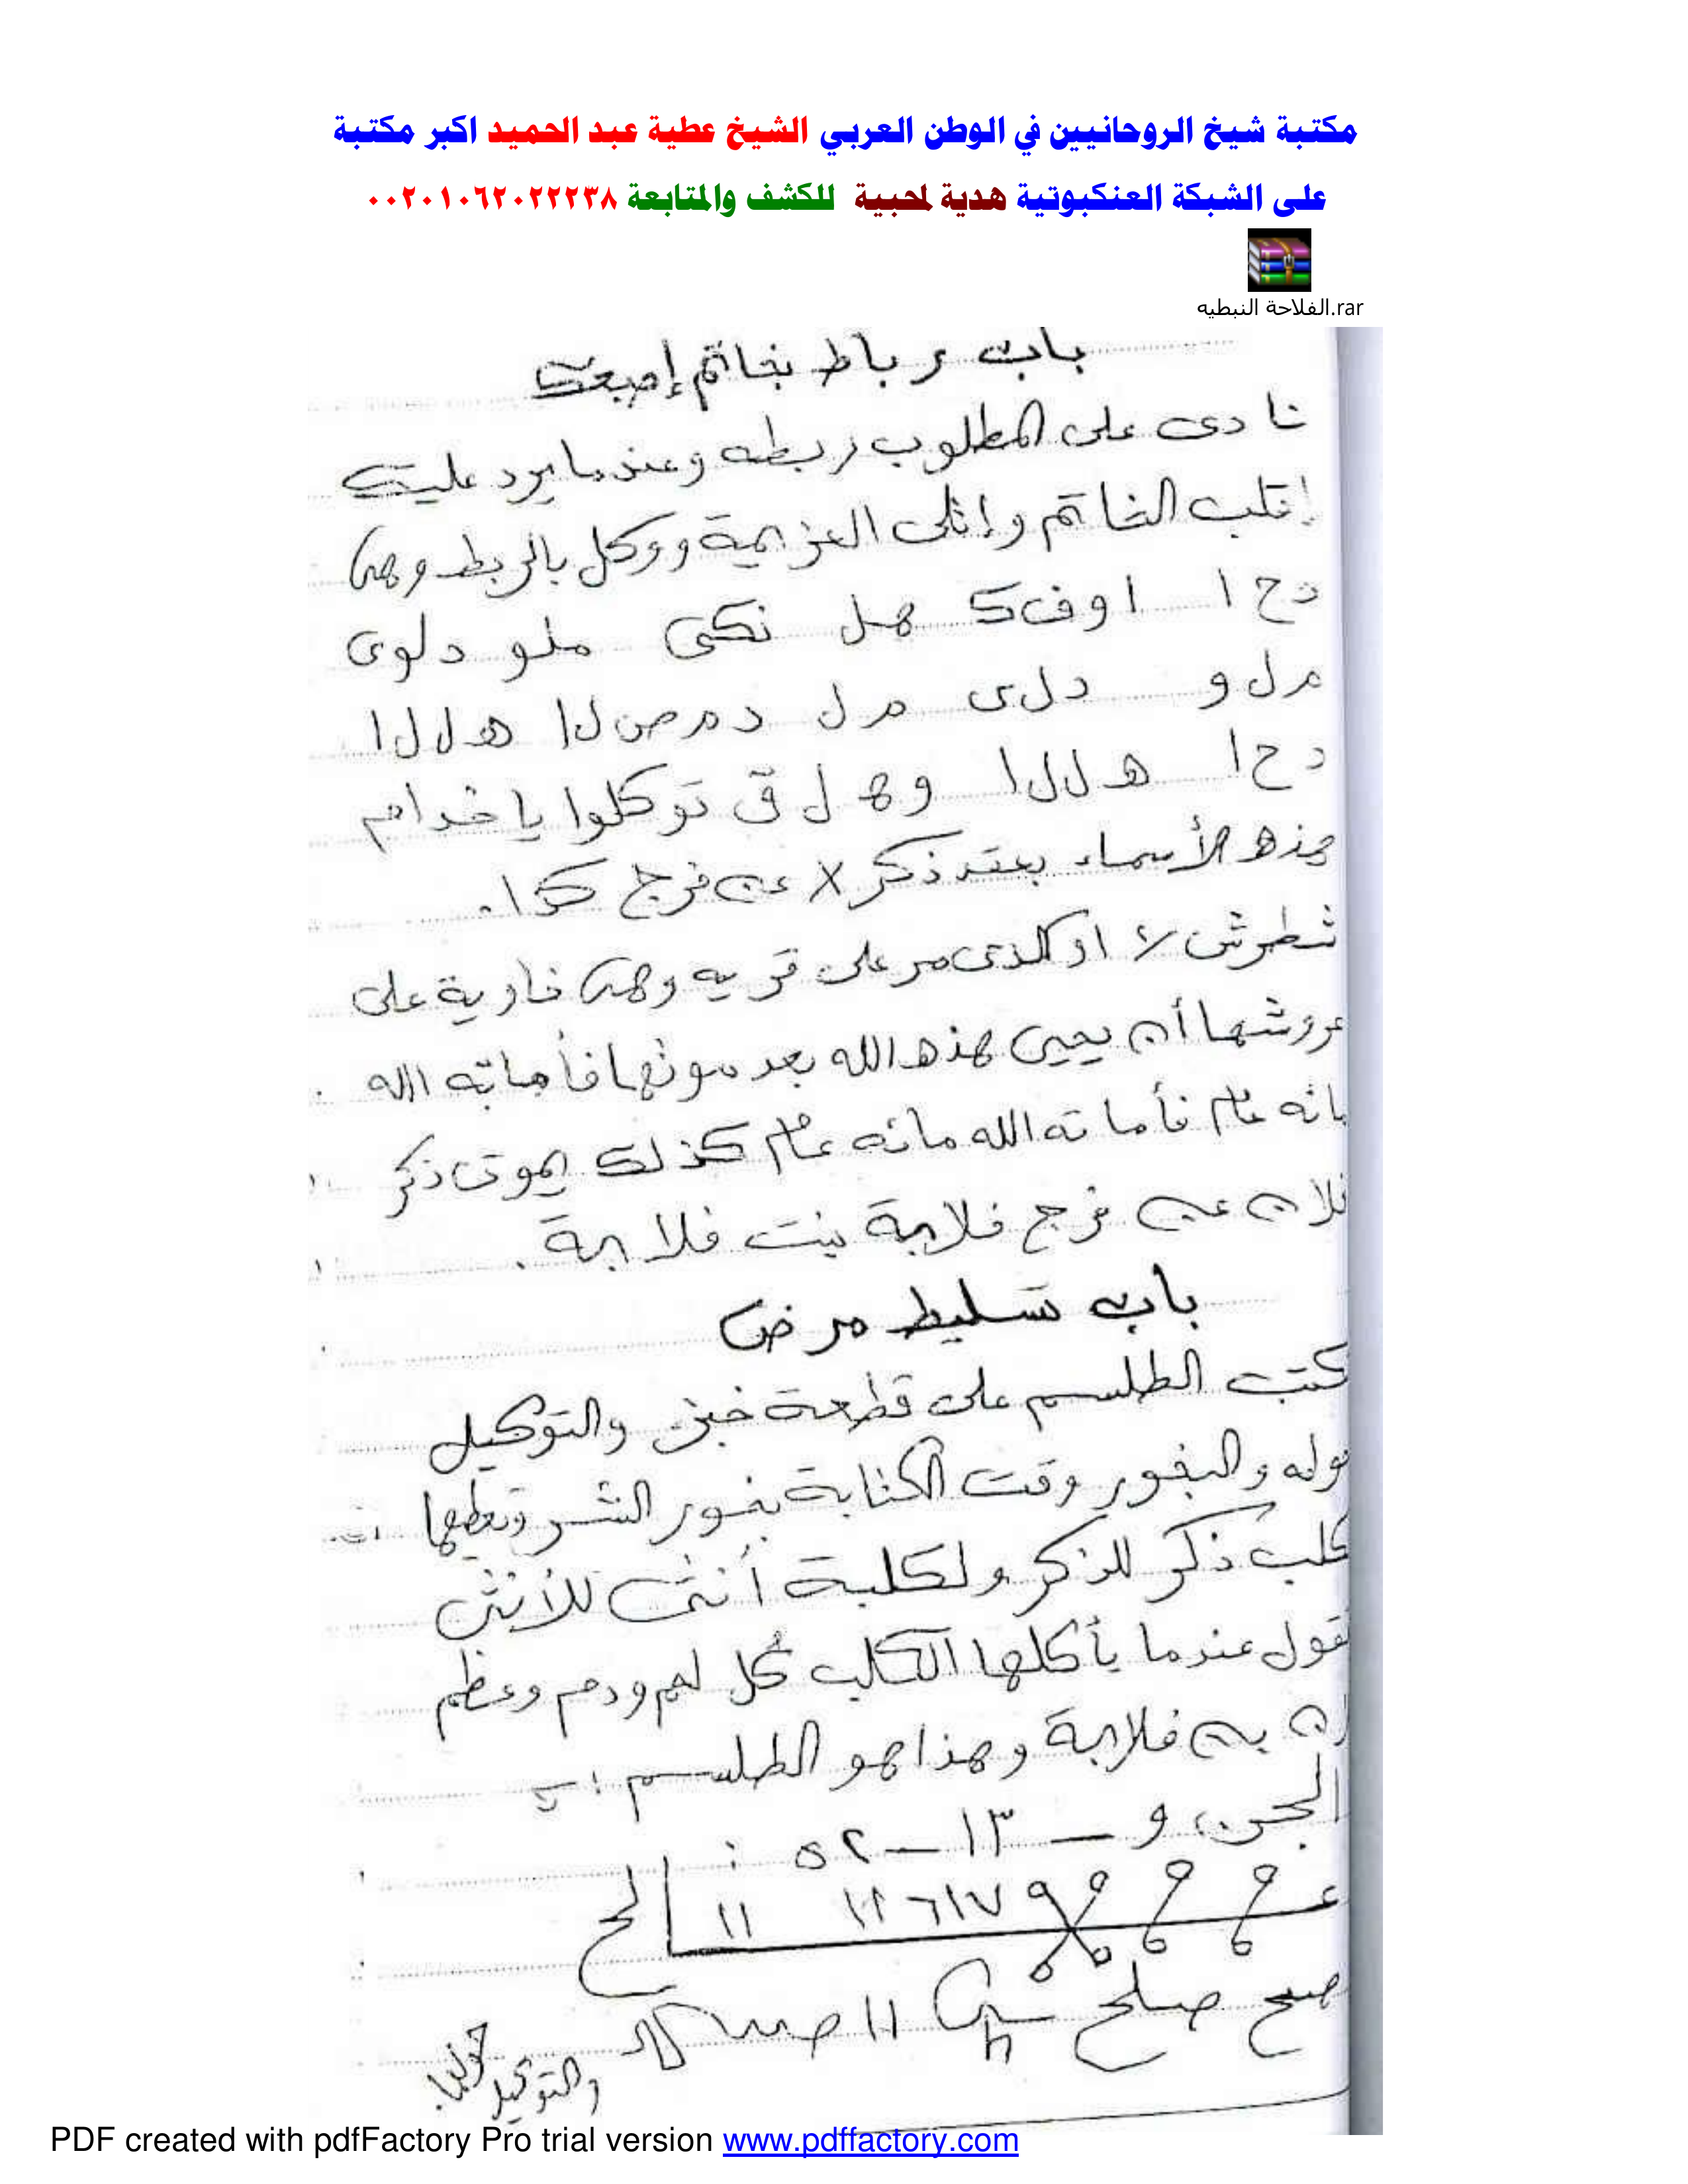 مكتبة شيخ الروحانيين في الوطن العربي الشيخ عطية عبد الحميد اكبر مكتبة
على الشبكة العنكبوتية هدية لمحبية للكشف والمتابعة ٠٠٢٠١٠٦٢٠٢٢٢٣٨
الفلاحة النبطيه.rar
باب رباط بخاتم إصبعك
نادى على المطلوب ربطه وعندما يرد عليك
إقلب الخاتم وإتلى العزيمة ووكل بالربط وهى
دح ا اوف ك هل نكى ملو دلوى
م ل و د ل ى م ل د م ص ل ا ه ل ل ا
د ح ا ه ل ل ا و ه ل ق توكلوا يا خدام
هذه الأسماء بعقد ذكر عن فرج كذا.
شطرش او كالذى مر على قريه وهى خاوية على
عروشها أن يحيى هذه الله بعد موتها فأماته الله
مائه عام فأماته الله مائه عام كذلك يموت ذكر
فلان عن فرج فلانة بنت فلانة.
باب تسليط مرض
كتب الطلسم على قطعة خبز والتوكيل
حوله والبخور وقت الكتابة بخور الشر وتعطها
كلب ذكر للذكر ولكلبة أنثى للأنثى
تقول عندما يأكلها الكلب كل لحم ودم وعظم
بن فلانة وهذا هو الطلسم :-
الجن و — ١٣ — ٥٢
١١ ١١٦١٧٩ الح
صح صلح ١١
والتوكيل حولها
PDF created with pdfFactory Pro trial version www.pdffactory.com